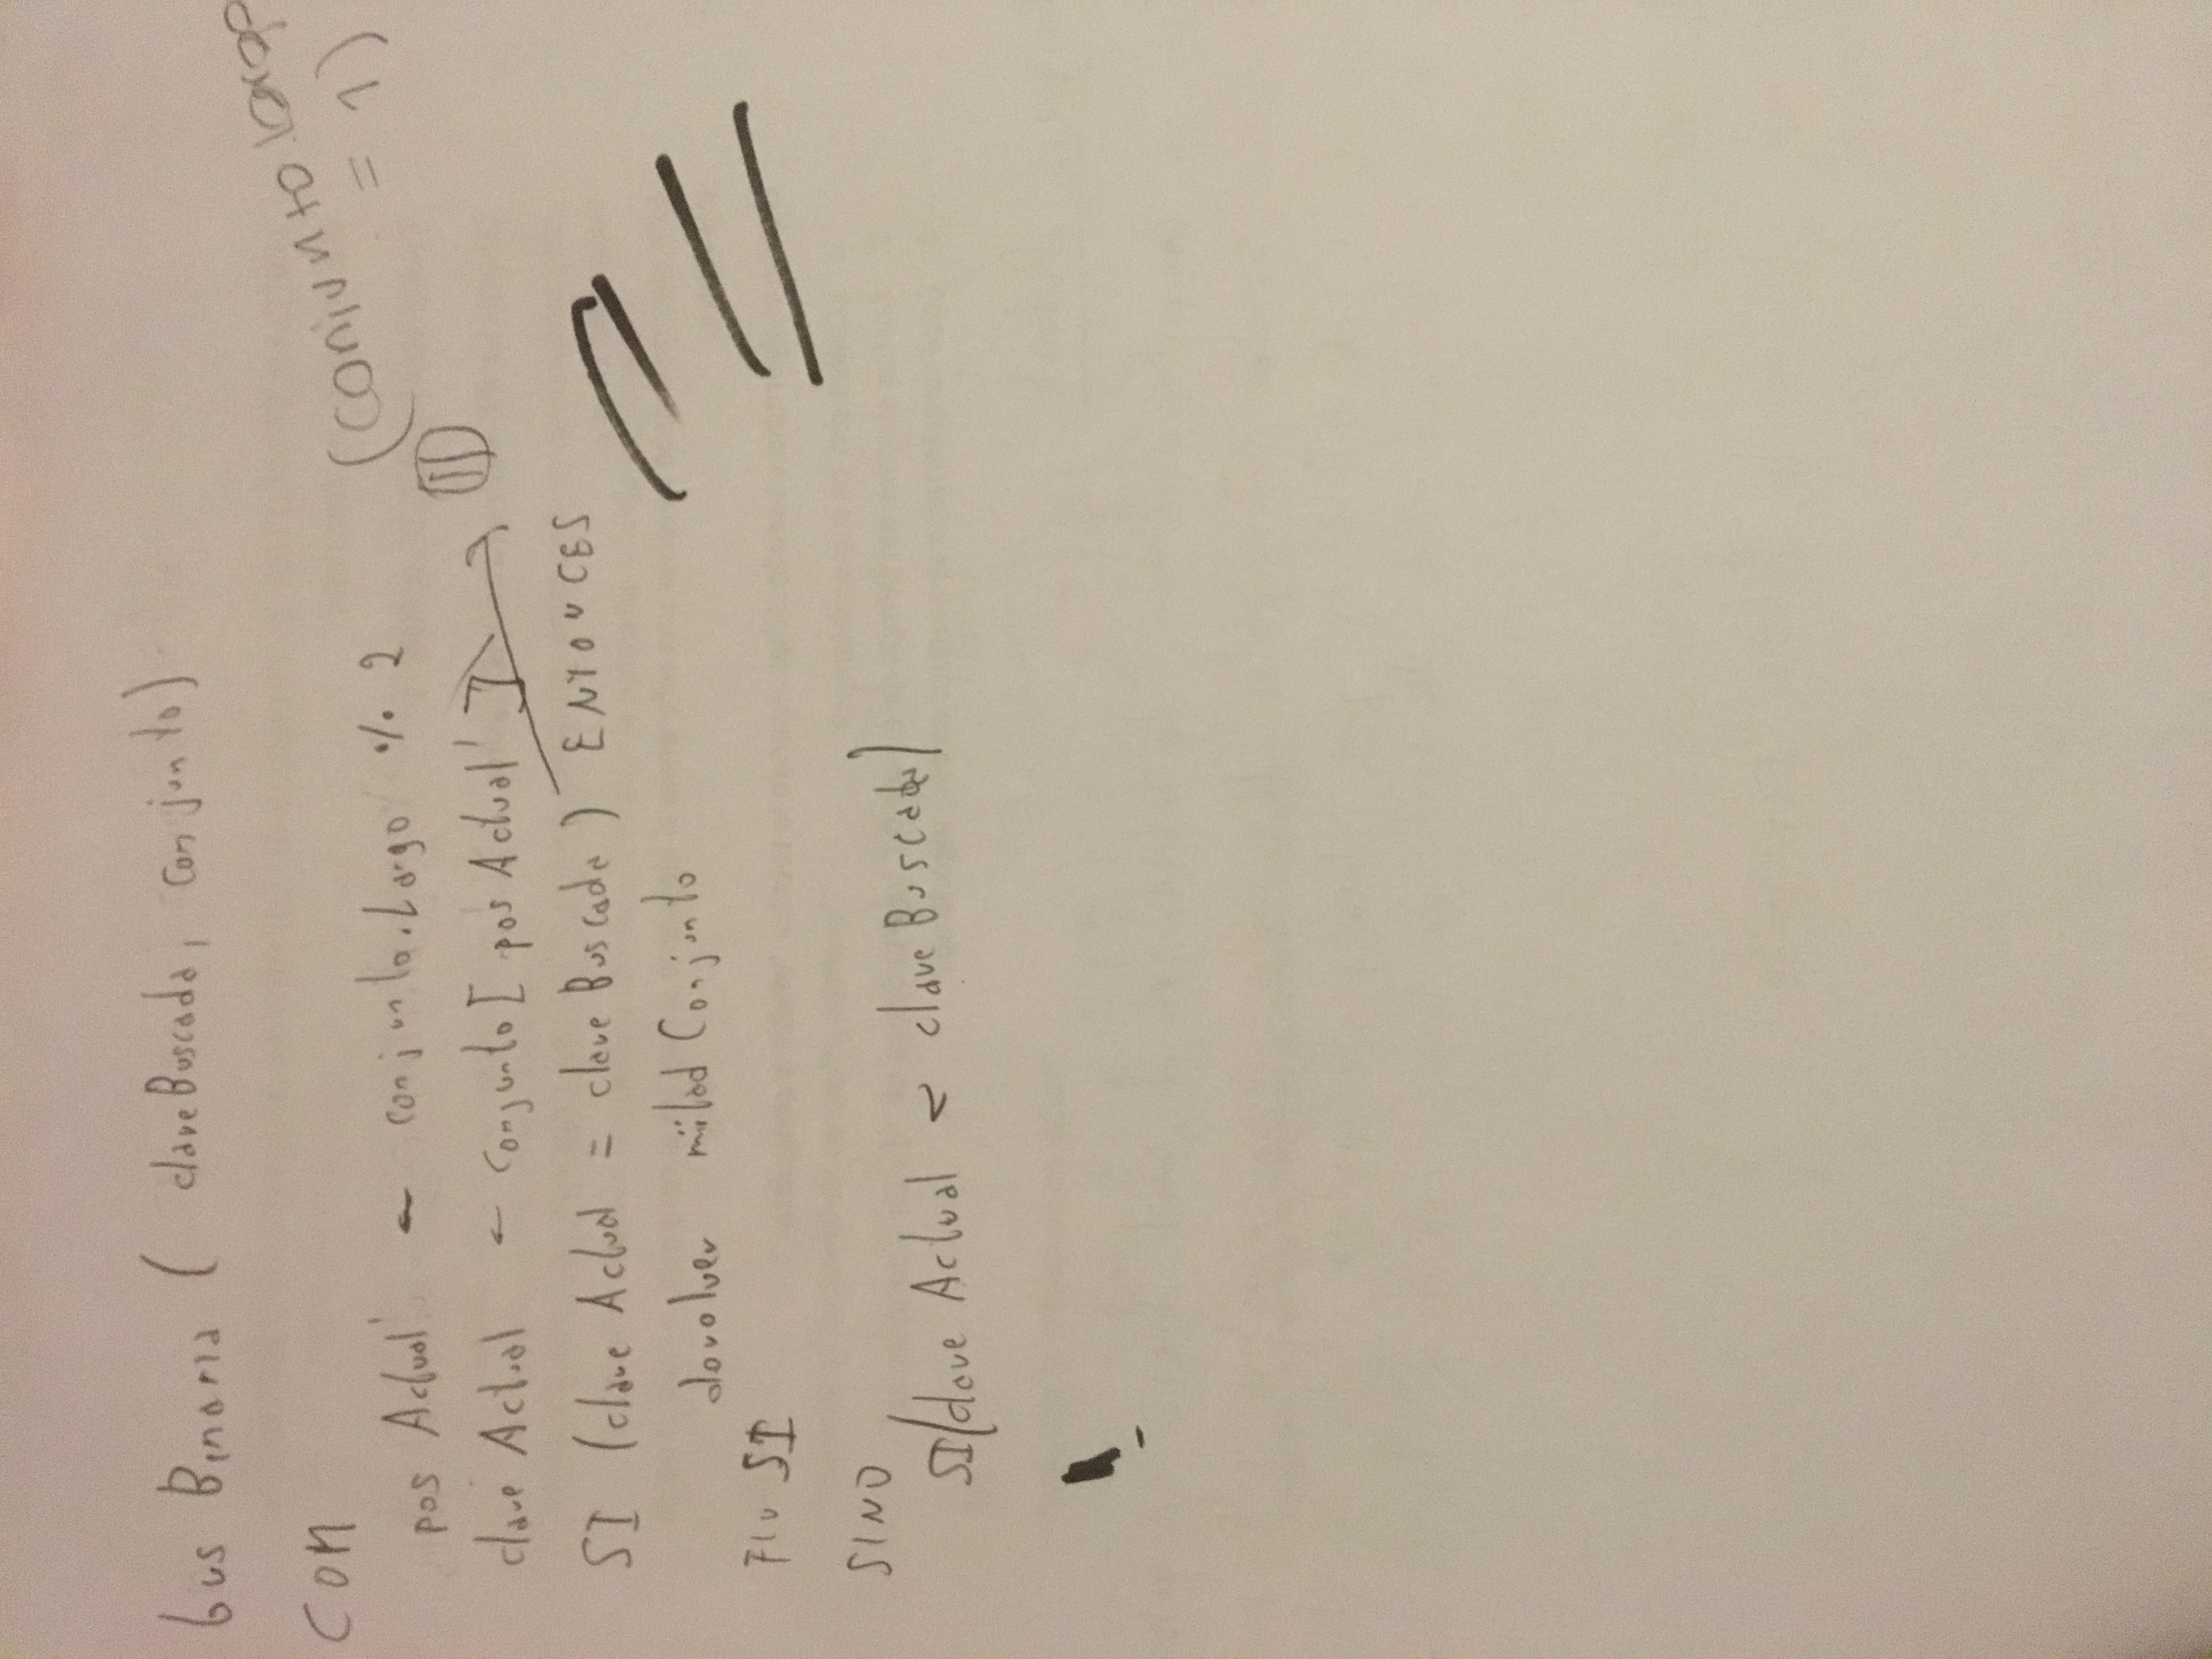 bus Binaria ( claveBuscada, conjunto)
COM
(conjunto.largo
= 1)
pos Actual' ← conjunto.Largo % 2
clave Actual ← conjunto [ pos Actual' ]
||
SI (clave Actual = clave Buscada ) ENTONCES
devolver mitad Conjunto
FIN SI
SINO
SI(clave Actual < clave Buscada)